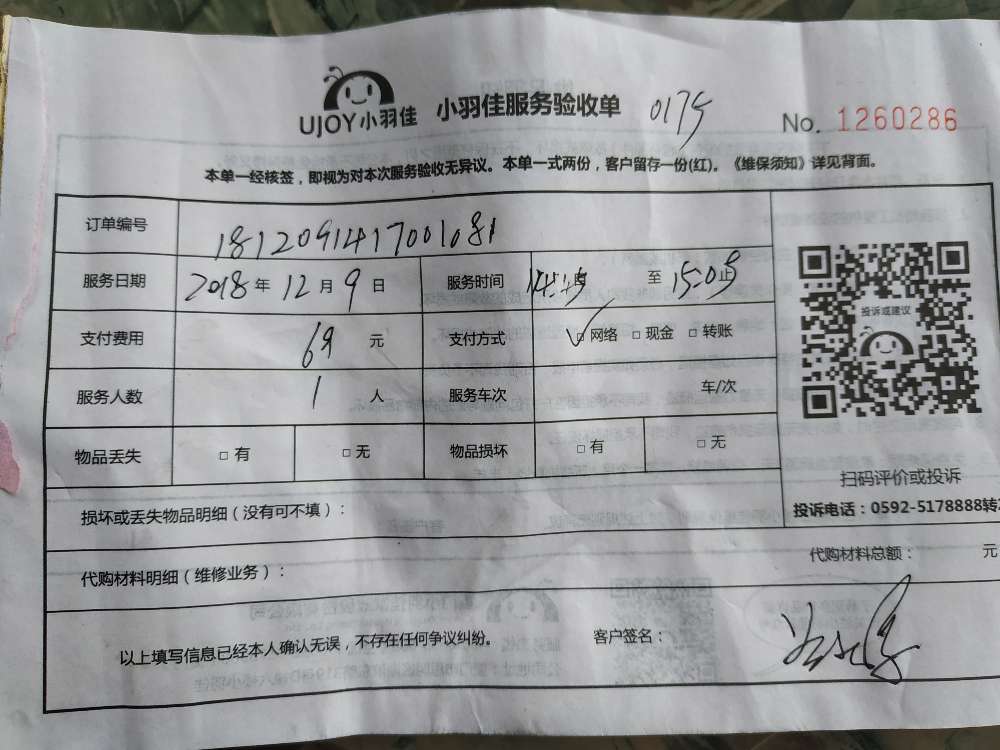 UJOY小羽佳 小羽佳服务验收单 0175 No. 1260286
本单一经核签，即视为对本次服务验收无异议。本单一式两份，客户留存一份(红)。《维保须知》详见背面。
订单编号 1812091417001081
服务日期 2018年12月9日 服务时间 14:45 至 15:05止
投诉或建议
支付费用 69 元 支付方式 ☑网络 □现金 □转账
服务人数 1 人 服务车次 车/次
物品丢失 □有 □无 物品损坏 □有 □无
扫码评价或投诉
投诉电话：0592-5178888转
损坏或丢失物品明细（没有可不填）：
代购材料明细（维修业务）： 代购材料总额： 元
以上填写信息已经本人确认无误，不存在任何争议纠纷。 客户签名：